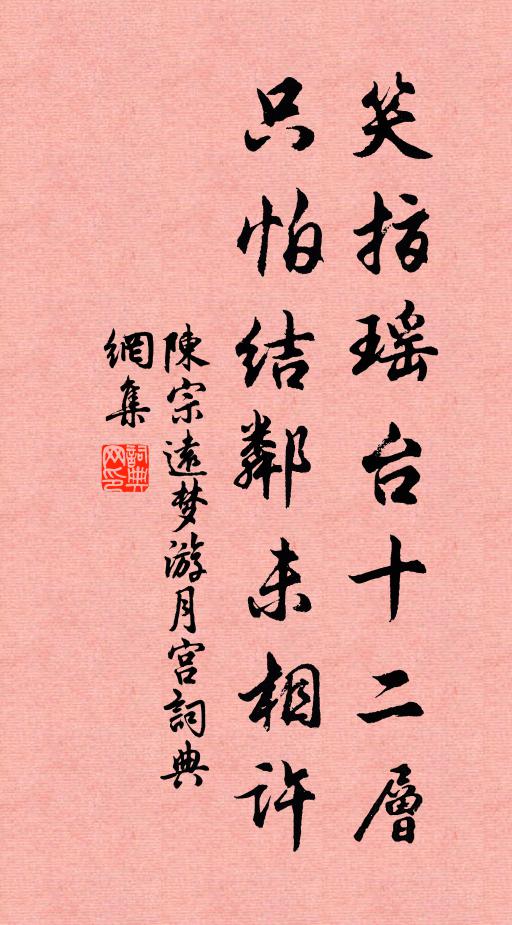 笑指瑶台十二層
只怕结鄰未相許
陳宗遠梦游月宫詞典
網集
詞典
网印